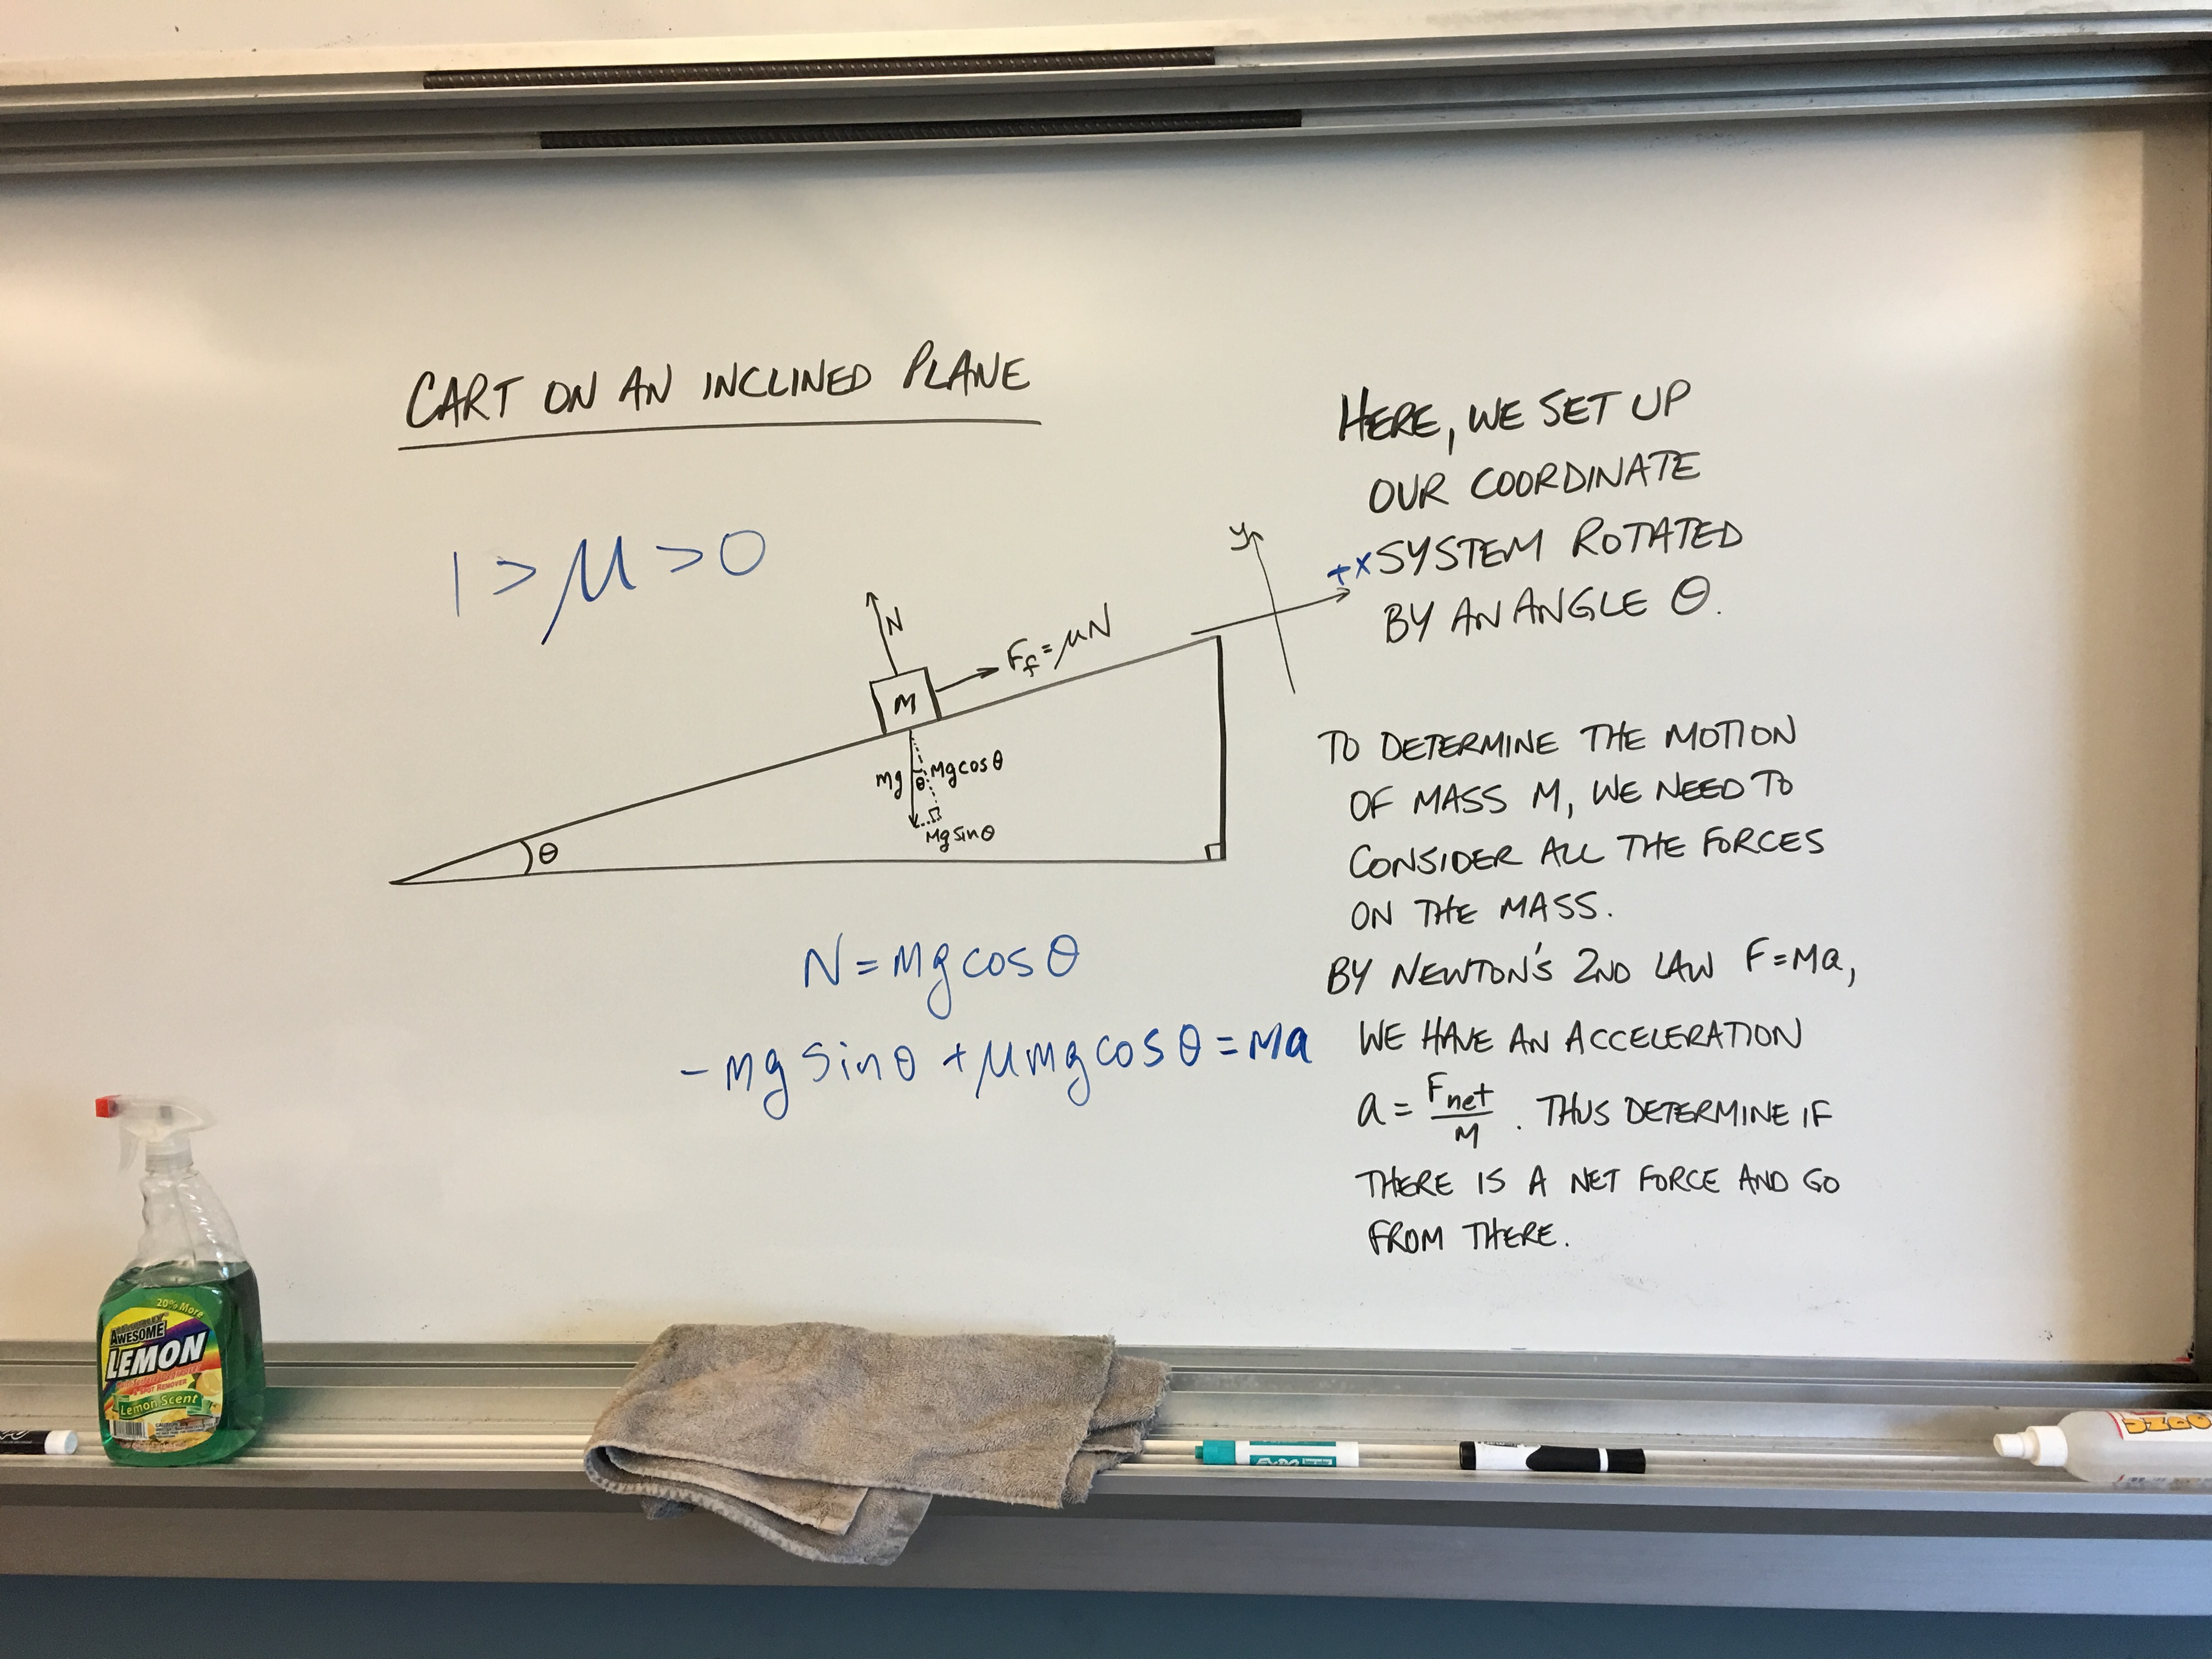 CART ON AN INCLINED PLANE
1 > μ > 0
N
F_f = μN
M
mg
θ
Mg cos θ
Mg sin θ
θ
y
+x
N = Mg cos θ
- mg sin θ + μmg cos θ = Ma
HERE, WE SET UP
OUR COORDINATE
SYSTEM ROTATED
BY AN ANGLE θ.
TO DETERMINE THE MOTION
OF MASS M, WE NEED TO
CONSIDER ALL THE FORCES
ON THE MASS.
BY NEWTON'S 2ND LAW F=Ma,
WE HAVE AN ACCELERATION
a = F_net / M . THUS DETERMINE IF
THERE IS A NET FORCE AND GO
FROM THERE.
20% More
AWESOME
LEMON
SPOT REMOVER
Lemon Scent
EXPO